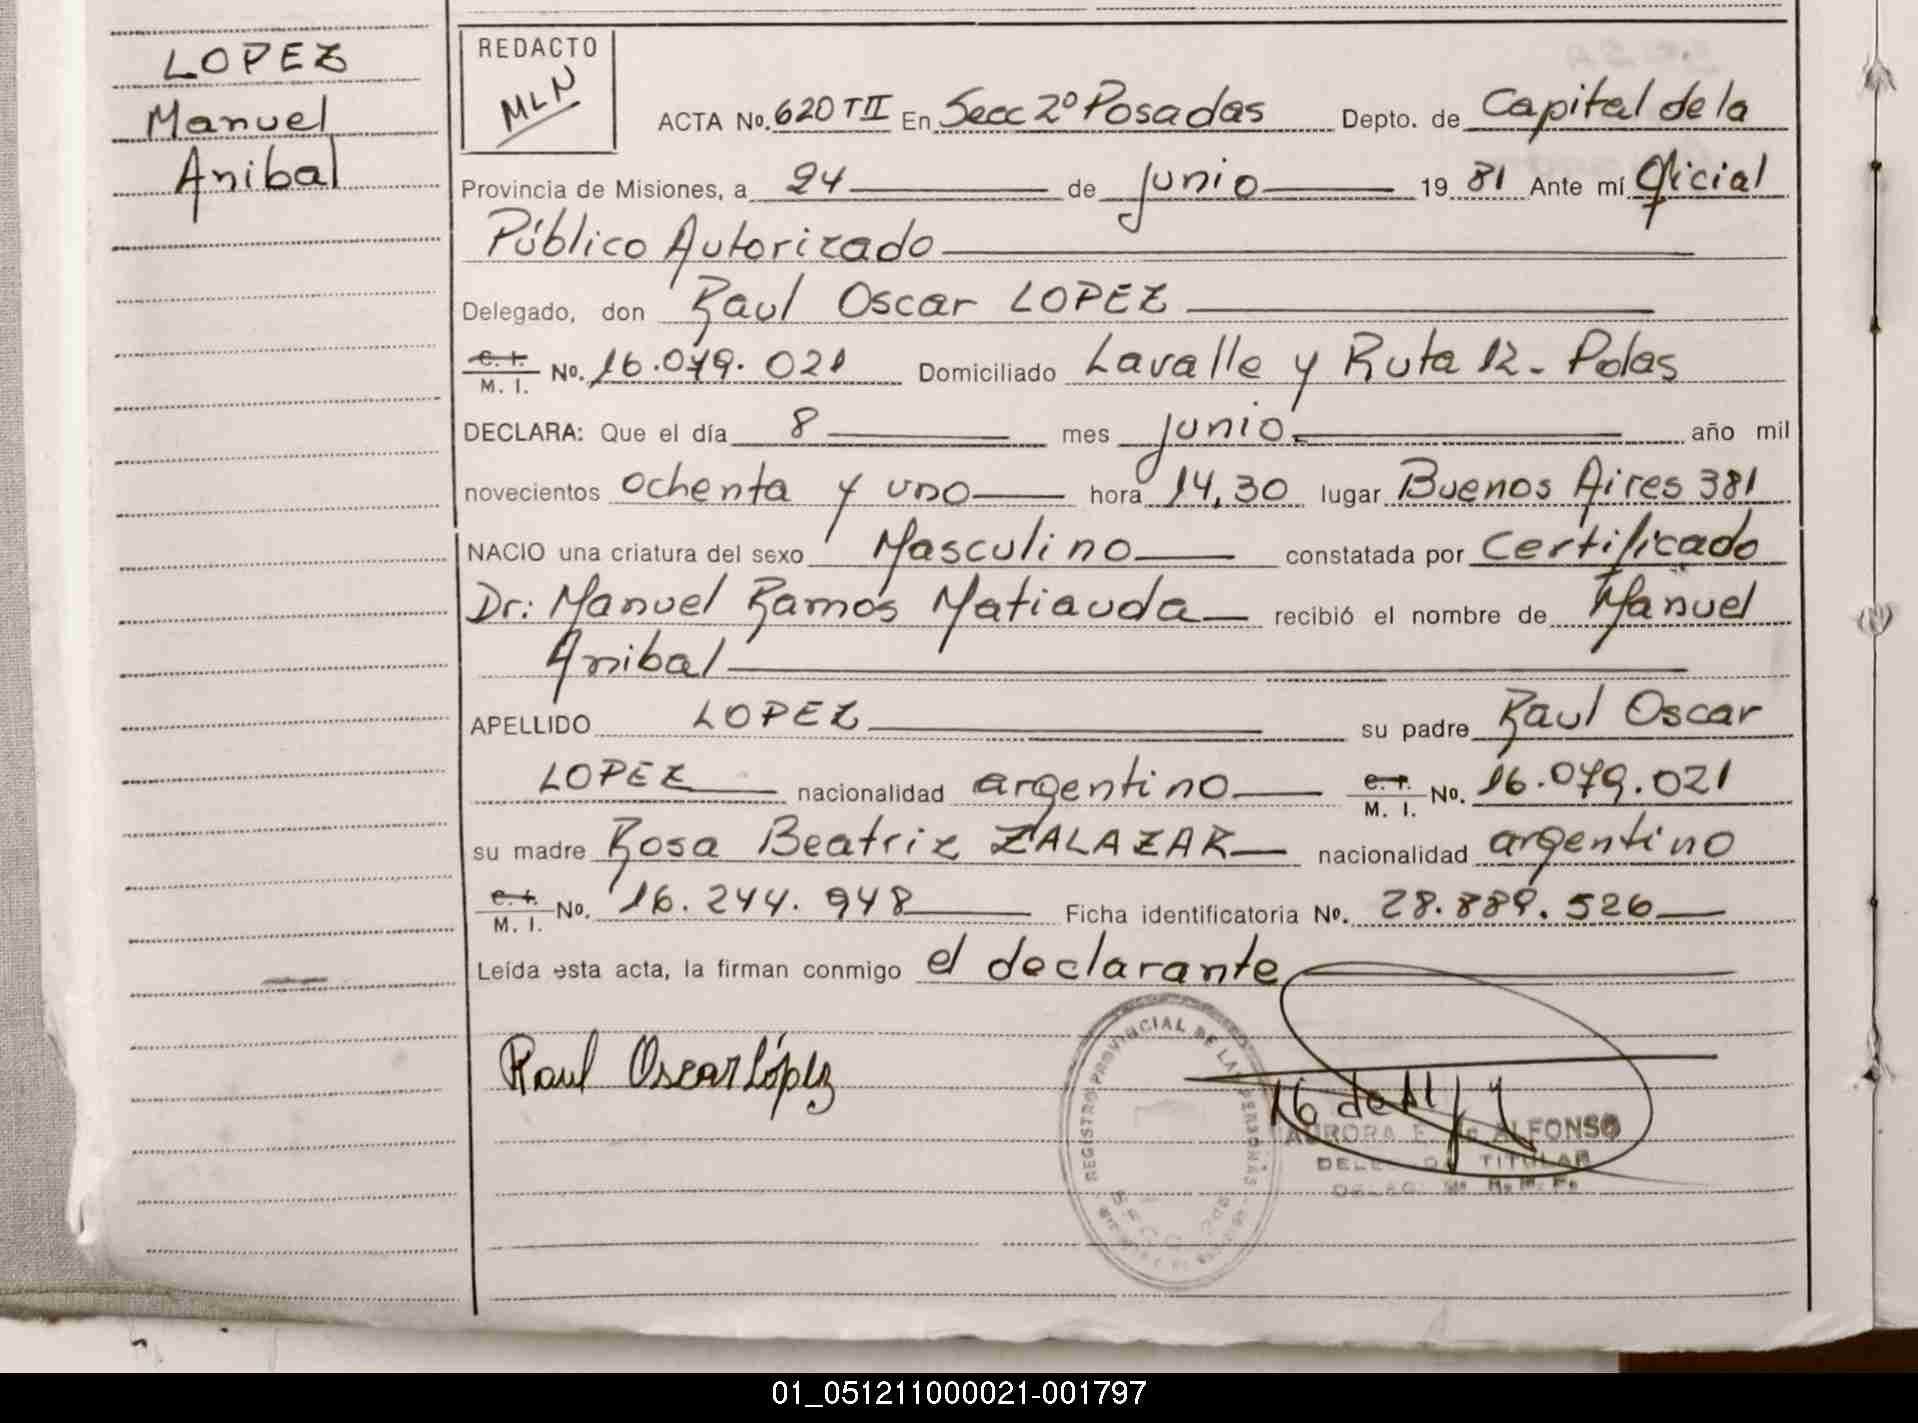 LOPEZ
Manuel
Anibal
REDACTO
MLN
ACTA No. 620 TII En Secc 2º Posadas Depto. de Capital de la
Provincia de Misiones, a 24 de junio 19 81 Ante mí Oficial
Público Autorizado
Delegado, don Raul Oscar LOPEZ
C. I. / M. I. No. 16.079.021 Domiciliado Lavalle y Ruta 12 - Pdas
DECLARA: Que el día 8 mes junio año mil
novecientos ochenta y uno hora 14,30 lugar Buenos Aires 381
NACIO una criatura del sexo Masculino constatada por Certificado
Dr: Manuel Ramos Matiauda recibió el nombre de Manuel
Anibal
APELLIDO LOPEZ su padre Raul Oscar
LOPEZ nacionalidad argentino C. I. / M. I. No. 16.079.021
su madre Rosa Beatriz ZALAZAR nacionalidad argentino
C. I. / M. I. No. 16.244.948 Ficha identificatoria No. 28.889.526
Leída esta acta, la firman conmigo el declarante
Raul Oscar López
REGISTRO PROVINCIAL DE LAS PERSONAS
SECC. 2da
AURORA E. de ALFONSO
DELEGADA TITULAR
01_051211000021-001797